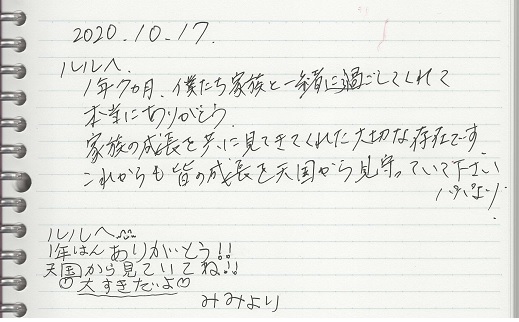 2020.10.17.
ルルへ.
1年7ヵ月、僕たち家族と一緒に過ごしてくれて
本当にありがとう
家族の成長を共に見てきてくれた大切な存在です.
これからも皆の成長を天国から見守っていて下さい
パパより.
ルルへ
1年はんありがとう!!
天国から見ていてね!!
大すきだよ♡
みみより